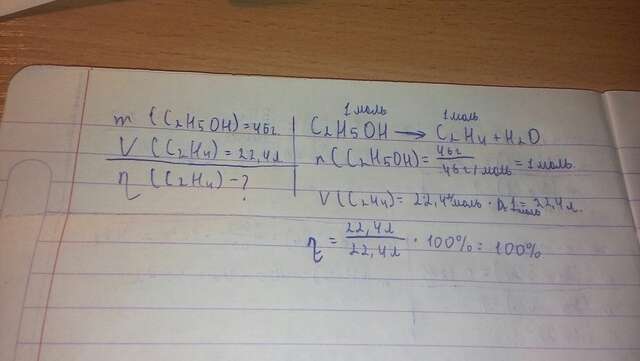 m (C₂H₅OH)=46г
V (C₂H₄)=22,4л
η (C₂H₄)-?
1 моль 1 моль
C₂H₅OH → C₂H₄ + H₂O
n(C₂H₅OH)= 46г / 46г/моль = 1 моль.
V(C₂H₄)= 22,4 моль · 1 моль = 22,4л.
η = 22,4л / 22,4л · 100% = 100%